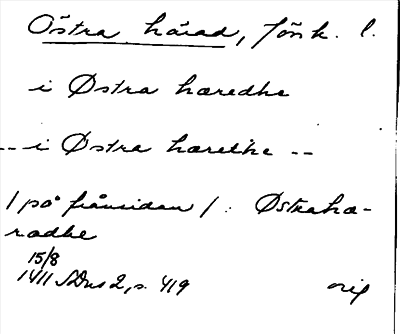 Östra härad, Jönk. l.
i Østra hæredhe
-- i Østra hæredhe --
/på frånsidan/: Østrahæ-
radhe
15/8
1411 SDns 2, s. 419
orig